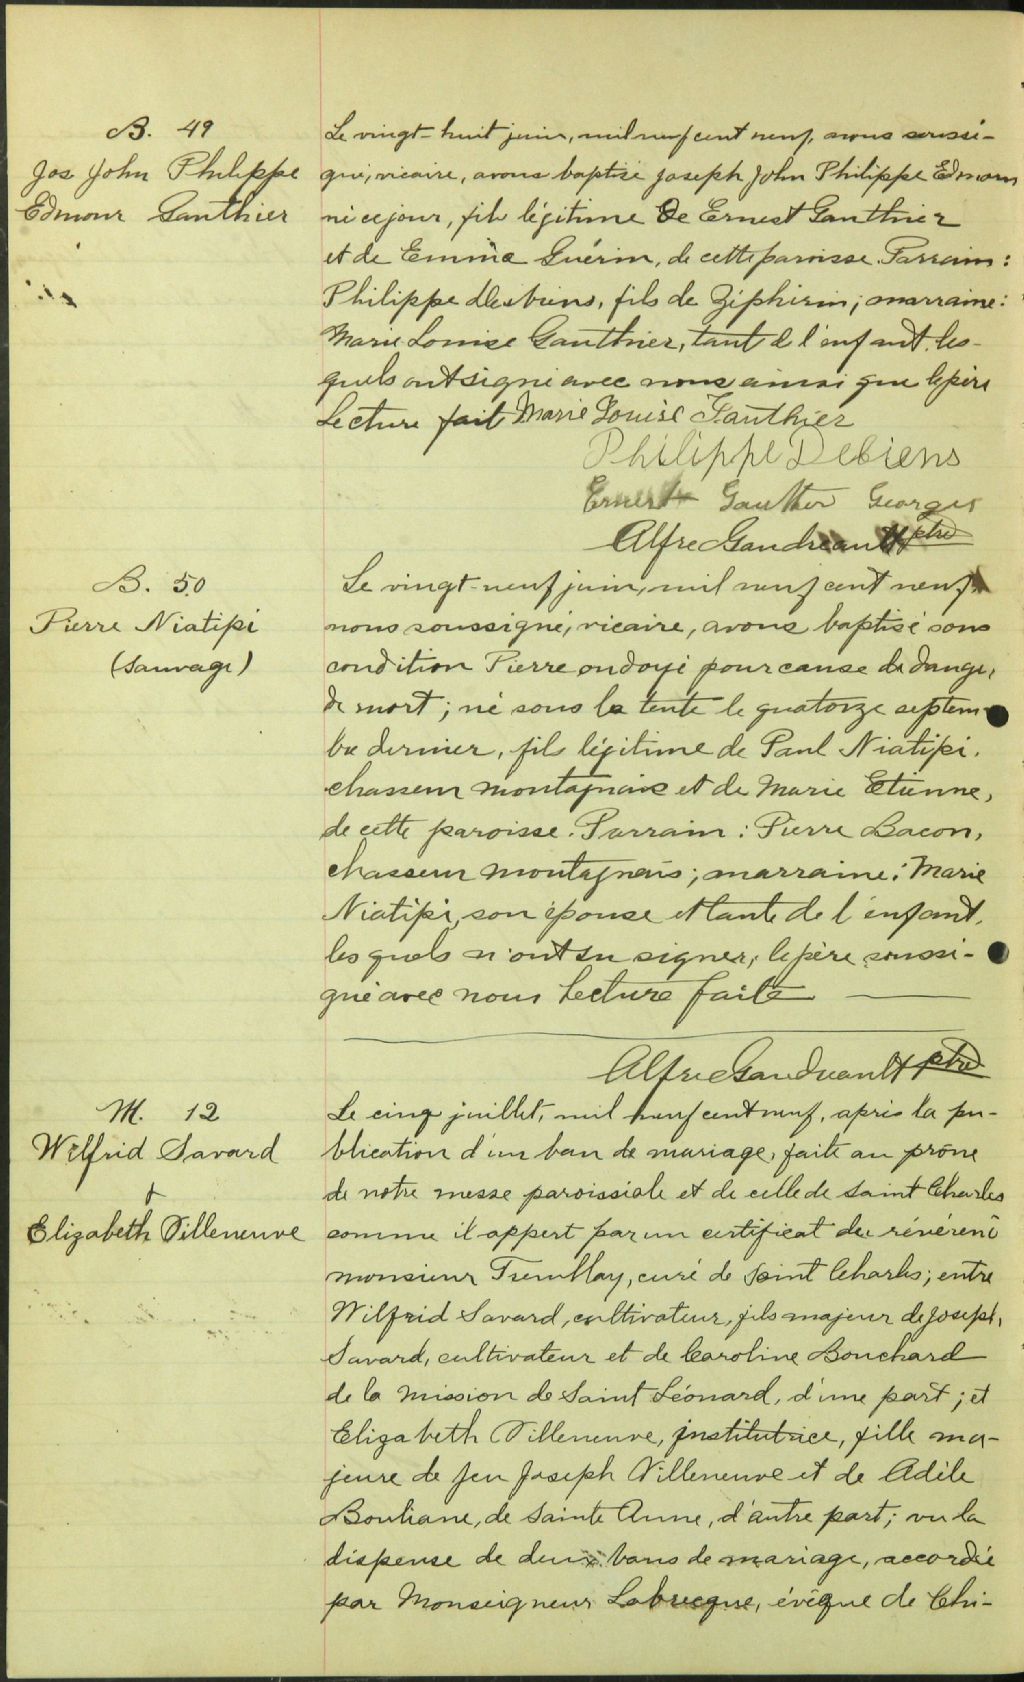 B. 49
Jos John Philippe
Edmour Gauthier
Le vingt-huit juin, mil neuf cent neuf, nous soussi-
gné, vicaire, avons baptisé Joseph John Philippe Edmour
né ce jour, fils légitime de Ernest Gauthier
et de Emma Guérin, de cette paroisse. Parrain:
Philippe Desbiens, fils de Ziphirin; marraine:
Marie Louise Gauthier, tante de l'enfant, les-
quels ont signé avec nous ainsi que le père
Lecture fait Marie Louise Gauthier
Philippe Debiens
Ernest Gauthier Georges
Alfre Gaudreault ptre
B. 50
Pierre Niatipi
(Sauvage)
Le vingt-neuf juin, mil neuf cent neuf
nous soussigné, vicaire, avons baptisé sous
condition Pierre ondoyé pour cause de danger
de mort; né sous la tente le quatorze septem-
bre dernier, fils légitime de Paul Niatipi,
chasseur montagnais et de Marie Etienne,
de cette paroisse. Parrain: Pierre Bacon,
chasseur montagnais; marraine: Marie
Niatipi, son épouse et tante de l'enfant,
les quels n'ont su signer, le père soussi-
gné avec nous Lecture faite
Alfre Gaudreault ptre
M. 12
Wilfrid Savard
&
Elizabeth Villeneuve
Le cinq juillet, mil neuf cent neuf, après la pu-
blication d'un ban de mariage, faite au prône
de notre messe paroissiale et de celle de Saint Charles
comme il appert par un certificat du révérend
monsieur Tremblay, curé de Saint Charles; entre
Wilfrid Savard, cultivateur, fils majeur de Joseph
Savard, cultivateur et de Caroline Bouchard
de la mission de Saint Léonard, d'une part; et
Elizabeth Villeneuve, institutrice, fille ma-
jeure de feu Joseph Villeneuve et de Adèle
Bouliane, de Sainte Anne, d'autre part; vu la
dispense de deux bans de mariage, accordée
par Monseigneur Labrecque, évêque de Chi-